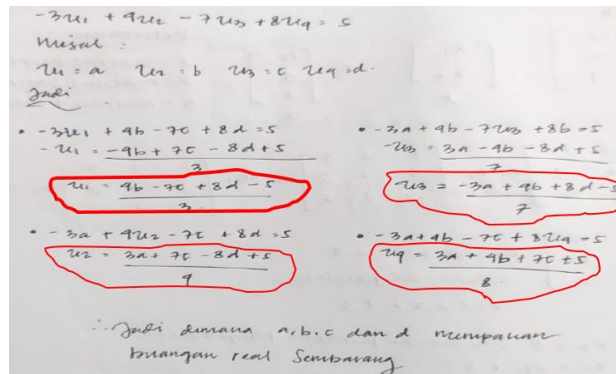 -3x1 + 4x2 - 7x3 + 8x4 = 5
misal :
x1 = a x2 = b x3 = c x4 = d.
Jadi
• -3x1 + 4b - 7c + 8d = 5
-x1 = -4b + 7c - 8d + 5
3
x1 = 4b - 7c + 8d - 5
3.
• -3a + 4b - 7x3 + 8b = 5
-x3 = 3a - 4b - 8d + 5
7
-x3 = -3a + 4b + 8d - 5
7
• -3a + 4x2 - 7c + 8d = 5
x2 = 3a + 7c - 8d + 5
4
• -3a + 4b - 7c + 8x4 = 5
x4 = 3a + 4b + 7c + 5
8.
∴ Jadi dimana a, b, c dan d merupakan
bilangan real Sembarang